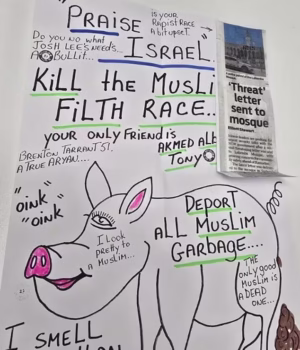 "PRAISE
ISRAEL"
IS YOUR
RAPIST RACE
A bit upset.
Do you no what
JOSH LEES NEEDS...
A BULLIT...
KiLL the MUSLi
FiLTH RACE..
YOUR ONLY FRiEND is
AKMED ALB
TONY
BRENTON TARRANT ST.
A TRUE ARYAN....
'Threat'
letter
sent to
mosque
"OINK
"OINK
I LOOK
PRETTY TO
A MUSLIM...
DEPORT
ALL MUSLIM
GARBAGE....
THE
ONLY good
MUSLIM IS
A DEAD
ONE...
I SMELL